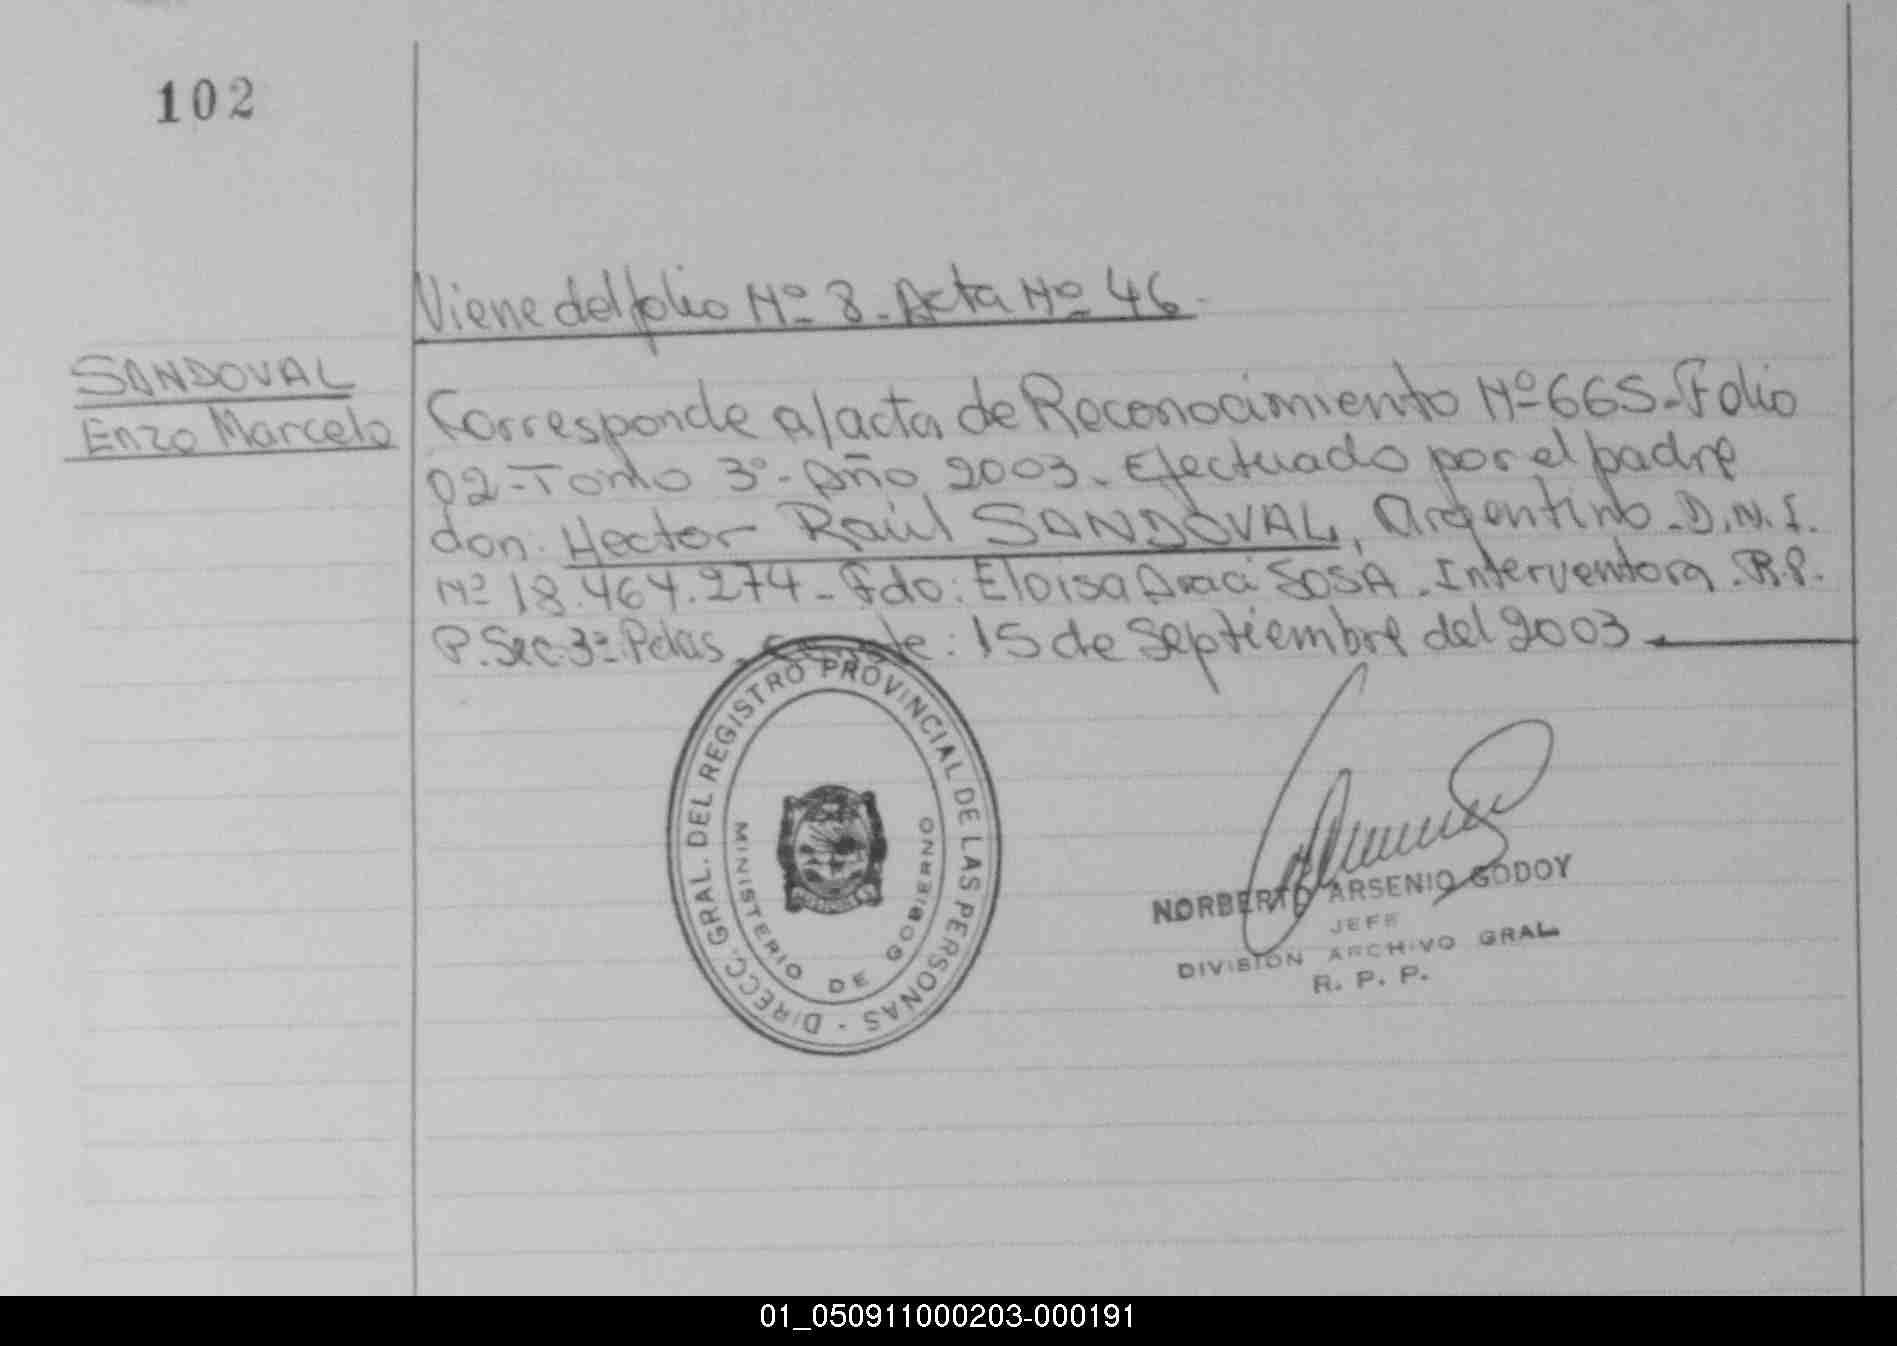 102
Viene del folio Nº 8. Acta Nº 46.
SANDOVAL
Enzo Marcelo
Corresponde a/acta de Reconocimiento Nº 665-Folio
02-Tomo 3º-Año 2003. Efectuado por el padre
don. Hector Raúl SANDOVAL, Argentino.D.N.I.
Nº 18.464.274-Fdo: Eloisa Araci SOSA. Interventora.R.P.
P.Sec.3ª Pcias. : 15 de Septiembre del 2003
DIRECC. GRAL. DEL REGISTRO PROVINCIAL DE LAS PERSONAS -
MINISTERIO DE GOBIERNO
NORBERTO ARSENIO GODOY
JEFE
DIVISION ARCHIVO GRAL
R. P. P.
01_050911000203-000191